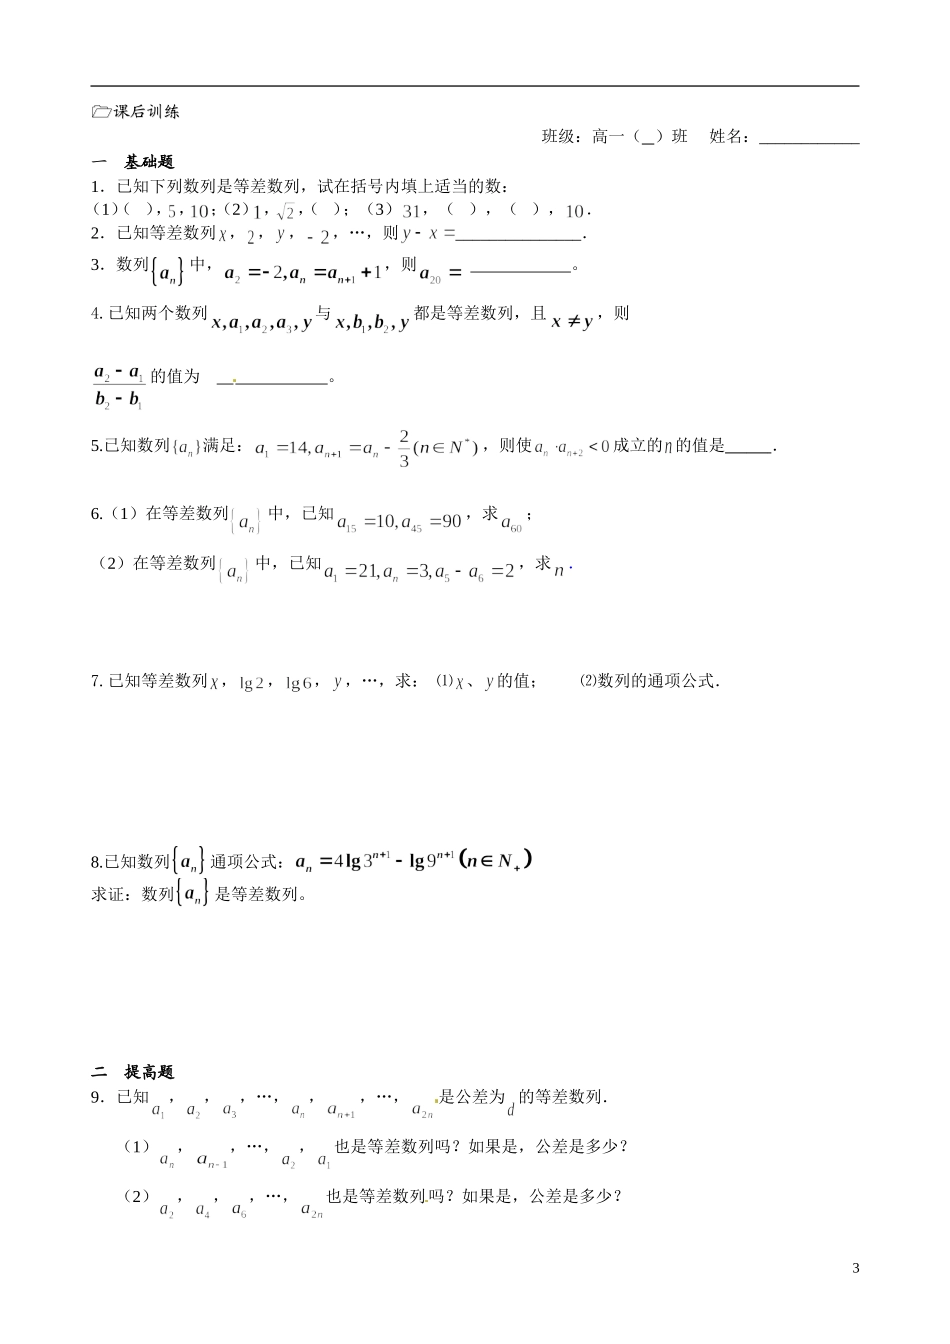 课后训练
班级：高一（ ）班 姓名：____________
一 基础题
1．已知下列数列是等差数列，试在括号内填上适当的数：
（1）（ ），5，10；（2）1，√2，（ ）；（3）31，（ ），（ ），10．
2．已知等差数列x，2，y，-2，…，则y－x＝_______________．
3．数列{aₙ}中，a₂=−2,aₙ=aₙ₊₁+1，则a₂₀= ____________。
4. 已知两个数列x,a₁,a₂,a₃,y与x,b₁,b₂,y都是等差数列，且x≠y，则
(a₂−a₁)/(b₂−b₁)的值为 _____________。
5.已知数列{aₙ}满足：a₁=14,aₙ₊₁=aₙ−2/3(n∈N*)，则使aₙ·aₙ₊₂<0成立的n的值是______．
6.（1）在等差数列{aₙ}中，已知a₁₅=10,a₄₅=90，求a₆₀；
（2）在等差数列{aₙ}中，已知a₁=21,aₙ=3,a₅−a₆=2，求n．
7. 已知等差数列x，lg2，lg6，y，…，求：⑴x、y的值； ⑵数列的通项公式．
8.已知数列{aₙ}通项公式：aₙ=4lg3ⁿ⁺¹−lg9ⁿ⁺¹(n∈N₊)
求证：数列{aₙ}是等差数列。
二 提高题
9．已知a₁，a₂，a₃，…，aₙ，aₙ₊₁，…，a₂ₙ是公差为d的等差数列．
（1）aₙ，aₙ₋₁，…，a₂，a₁也是等差数列吗？如果是，公差是多少？
（2）a₂，a₄，a₆，…，a₂ₙ也是等差数列吗？如果是，公差是多少？
3